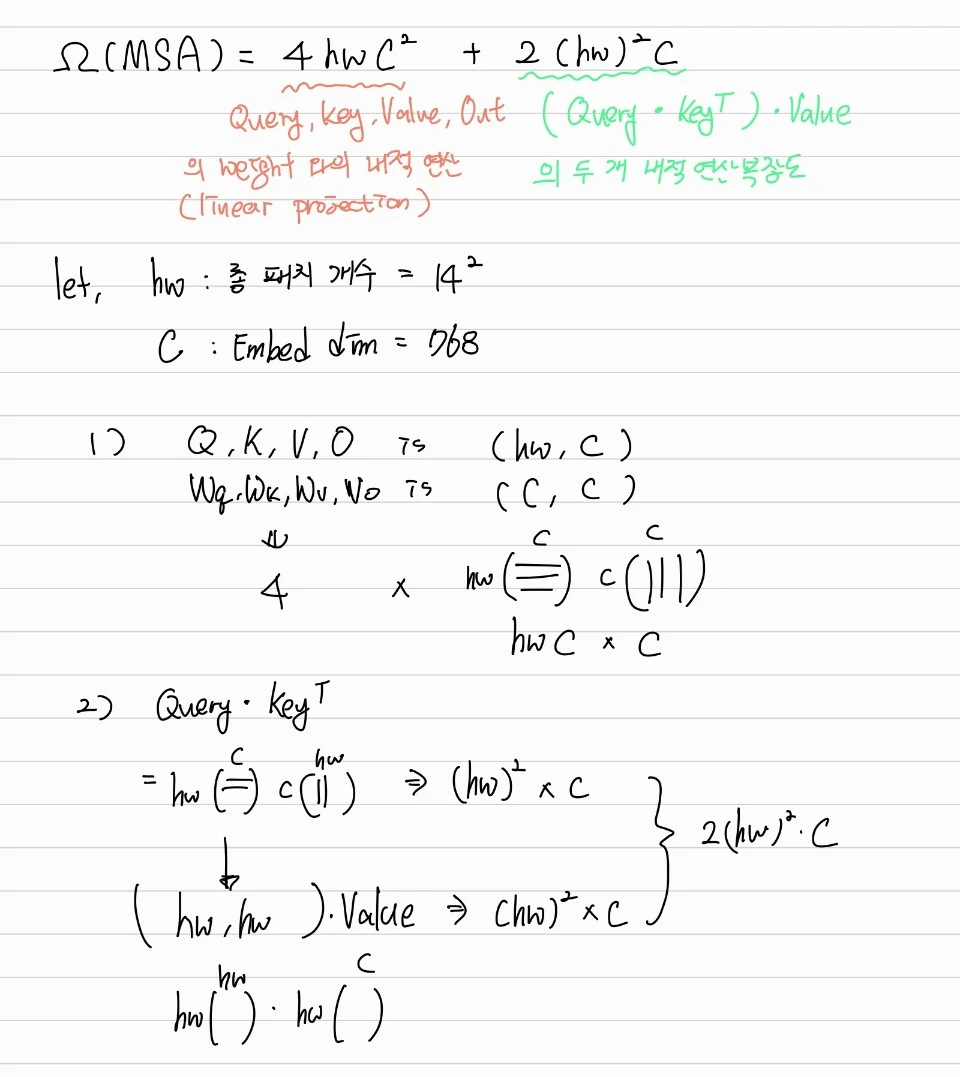 Ω(MSA) = 4hwC² + 2(hw)²C
Query, Key, Value, Out (Query · Keyᵀ) · Value
의 weight 과의 내적 연산 의 두 개 내적 연산복잡도
(linear projection)
let, hw : 총 패치 개수 = 14²
C : Embed dim = 768
1) Q, K, V, O is (hw, C)
Wq, Wk, Wv, Wo is (C, C)
⇓ C C
4 × hw( ) C( )
hwC × C
2) Query · Keyᵀ
C hw
= hw( ) C( ) ⇒ (hw)² × C
2(hw)² · C
↓
(hw, hw) · Value ⇒ (hw)² × C
hw C
hw( ) · hw( )